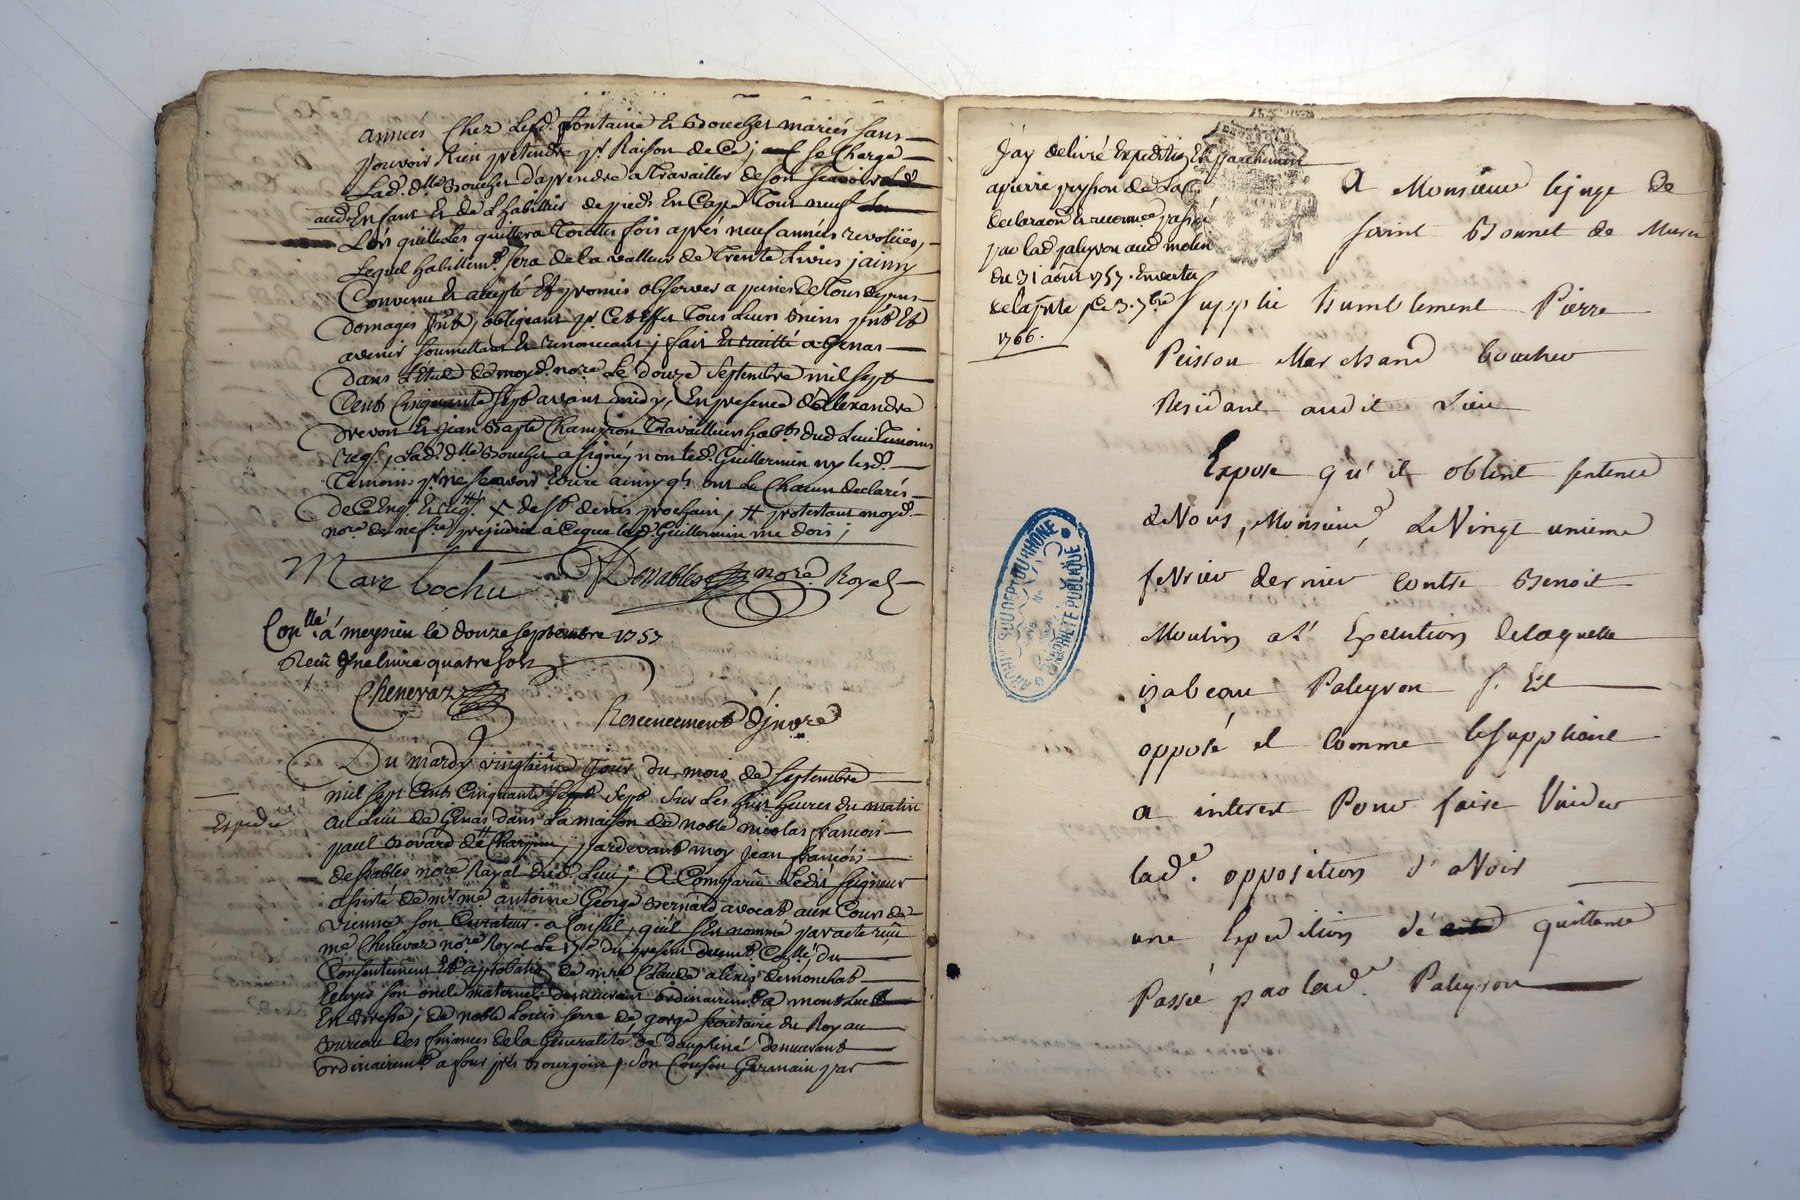 années chez lesd. fontaine et Bouchet mariés sans
pouvoir Rien prétendre pr. Raison de Ce, se Charge
Lad. dlle Bouchet d'aprendre a travailler de son
aud. Enfant Et de L'habiller de pieds En Cap Tout neuf
Lors quil Les quittera Toutes fois après neuf années revoluës,
Lequel habillemt. sera de la valleur de Trente Livres, ainsy
Convenu Et accepté Et promis observer a peines de Tous depens
domages Jnts, obligeant pr. Cet Effet Tous Leurs biens pnts Et
avenir soumettant Et renonceant, fait Et recitté a Genas
dans L'étude de moyd. nore. Le douze Septembre mil Sept
Cents Cinquante Sept avant midy, En presence d'Alexandre
drevon Et jean Bapte Champion Travailleurs habts. dud. Lieu Temoins
reqs., Lad. dlle Bouchet a signé, non led. Guillermin ny lesd.
Temoins pr. ne sçavoir Ecrire ainsy qls ont Le Chacun declarés
de Ce Enq. Et reqs. X de St denis prochain, # protestant moyd.
nore. de ne fre. prejudice a Ceque led. Guillermin me dois;
Marc bochu Desvables nore Royal
Conllé. a meysieu le douze septembre 1757
Reçu Une livre quatre sols
Chenevaz
d'jnvre
Du mardy vingtième Jour du mois de Septembre
mil Sept Cents Cinquante Sept Sur Les huit heures du matin
Expedié
au Lieu de Genas dans La maison de noble nicolas françois
paul Bovard de Charpin, pardevant moy Jean françois
desvables nore Royal dud. Lieu, A Comparu Ledit seigneur
assisté de mr. me antoine George Bernard avocat aux Cours de
Vienne son Curateur a Conseil, qu'il s'Est nommé par acte reçu
me Chenevaz nore Royal Le du present duemt. Collé. du
Consentement Et aprobatio de mre Claude alexis demonchat
son oncle maternel demeurant ordinairemt a
En Bresse; de noble Louis serre de gorge secretaire du Roy au
Bureau des finances de la Generalité de dauphiné demeurant
ordinairemt. a four près Bourgoin, son Cousin Germain par
J'ay delivré Expeditio En parchemin
a pierre peysson de La
declaraon. Et passé
par lad. paleyron aud. molin
du 31 août 1757. En vertu
de la pnte ce 3. 7bre
1766.
A Monsieur le juge de
saint Bonnet de Mure
Supplie humblement Pierre
Peisson Marchand boucher
Residant audit Lieu
Expose qu'il obtint sentence
de Vous, Monsieur, Le Vingt unieme
fevrier dernier Contre Benoit
Moulin a L'Execution delaquelle
izabeau Paleyron s'Est
opposé et Comme le suppliant
a interest Pour faire Vuider
lad.e opposition d'avoir
une Expedition de quittance
Passée par lad.e Paleyron
ARCHIVES DU DEPT DU RHONE
PROPRIÉTÉ PUBLIQUE